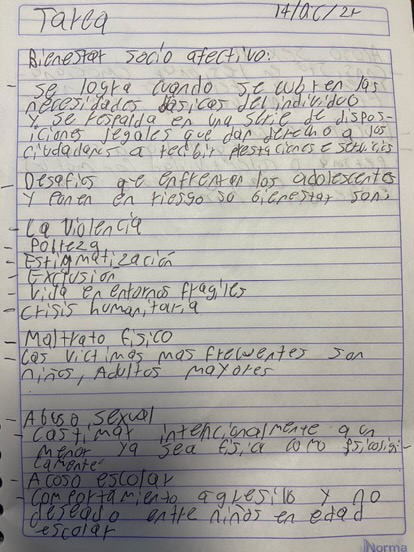 Tarea
Bienestar socio afectivo:
- Se logra cuando se cubren las
necesidades basicas del individuo
y se respalda en una serie de dispos-
iciones legales que dan derecho a los
ciudadanos a recibir prestaciones e servicios
- Desafios que enfrentan los adolescentes
y ponen en riesgo su bienestar son:
- La Violencia
- Pobreza
- Estigmatización
- Exclusion
- Vida en entornos fragiles
- crisis humanitaria
- Maltrato fisico
- Las victimas mas frecuentes son
niños, Adultos mayores
- Abuso sexual
- Lastimar intencionalmente a un
menor ya sea fisica como psicologi-
camente
- Acoso escolar
- Comportamiento agresibo y no
deseado entre niños en edad
escolar
Norma